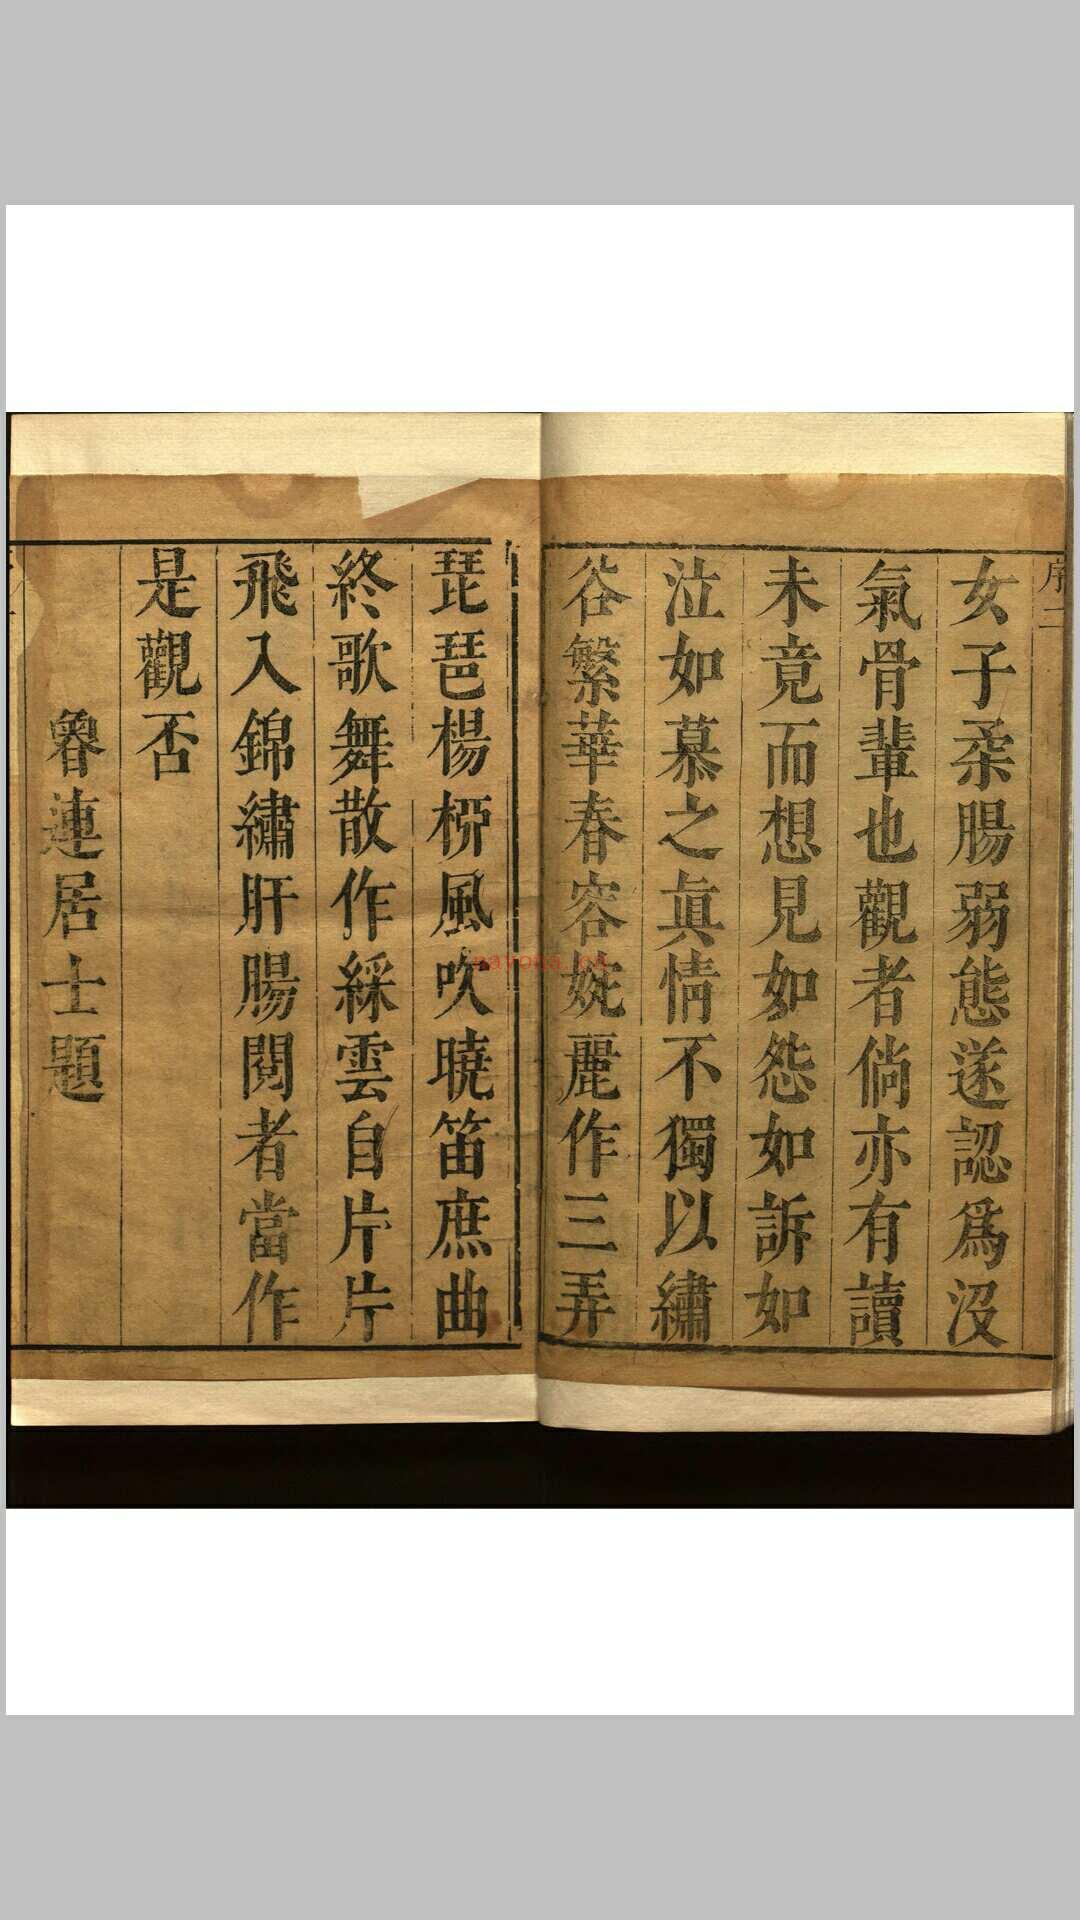 序二
女子柔腸弱態遂認爲沒
氣骨輩也觀者倘亦有讀
未竟而想見如怨如訴如
泣如慕之眞情不獨以繡
谷繁華春容婉麗作三弄
琵琶楊桺風吹曉笛庶曲
終歌舞散作綵雲自片片
飛入錦繡肝腸閱者當作
是觀否
魯連居士題
navona.cn